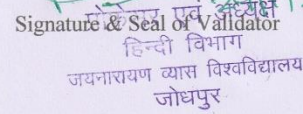 Signature & Seal of Validator
एवं अध्यक्ष
हिन्दी विभाग
जयनारायण व्यास विश्वविद्यालय
जोधपुर